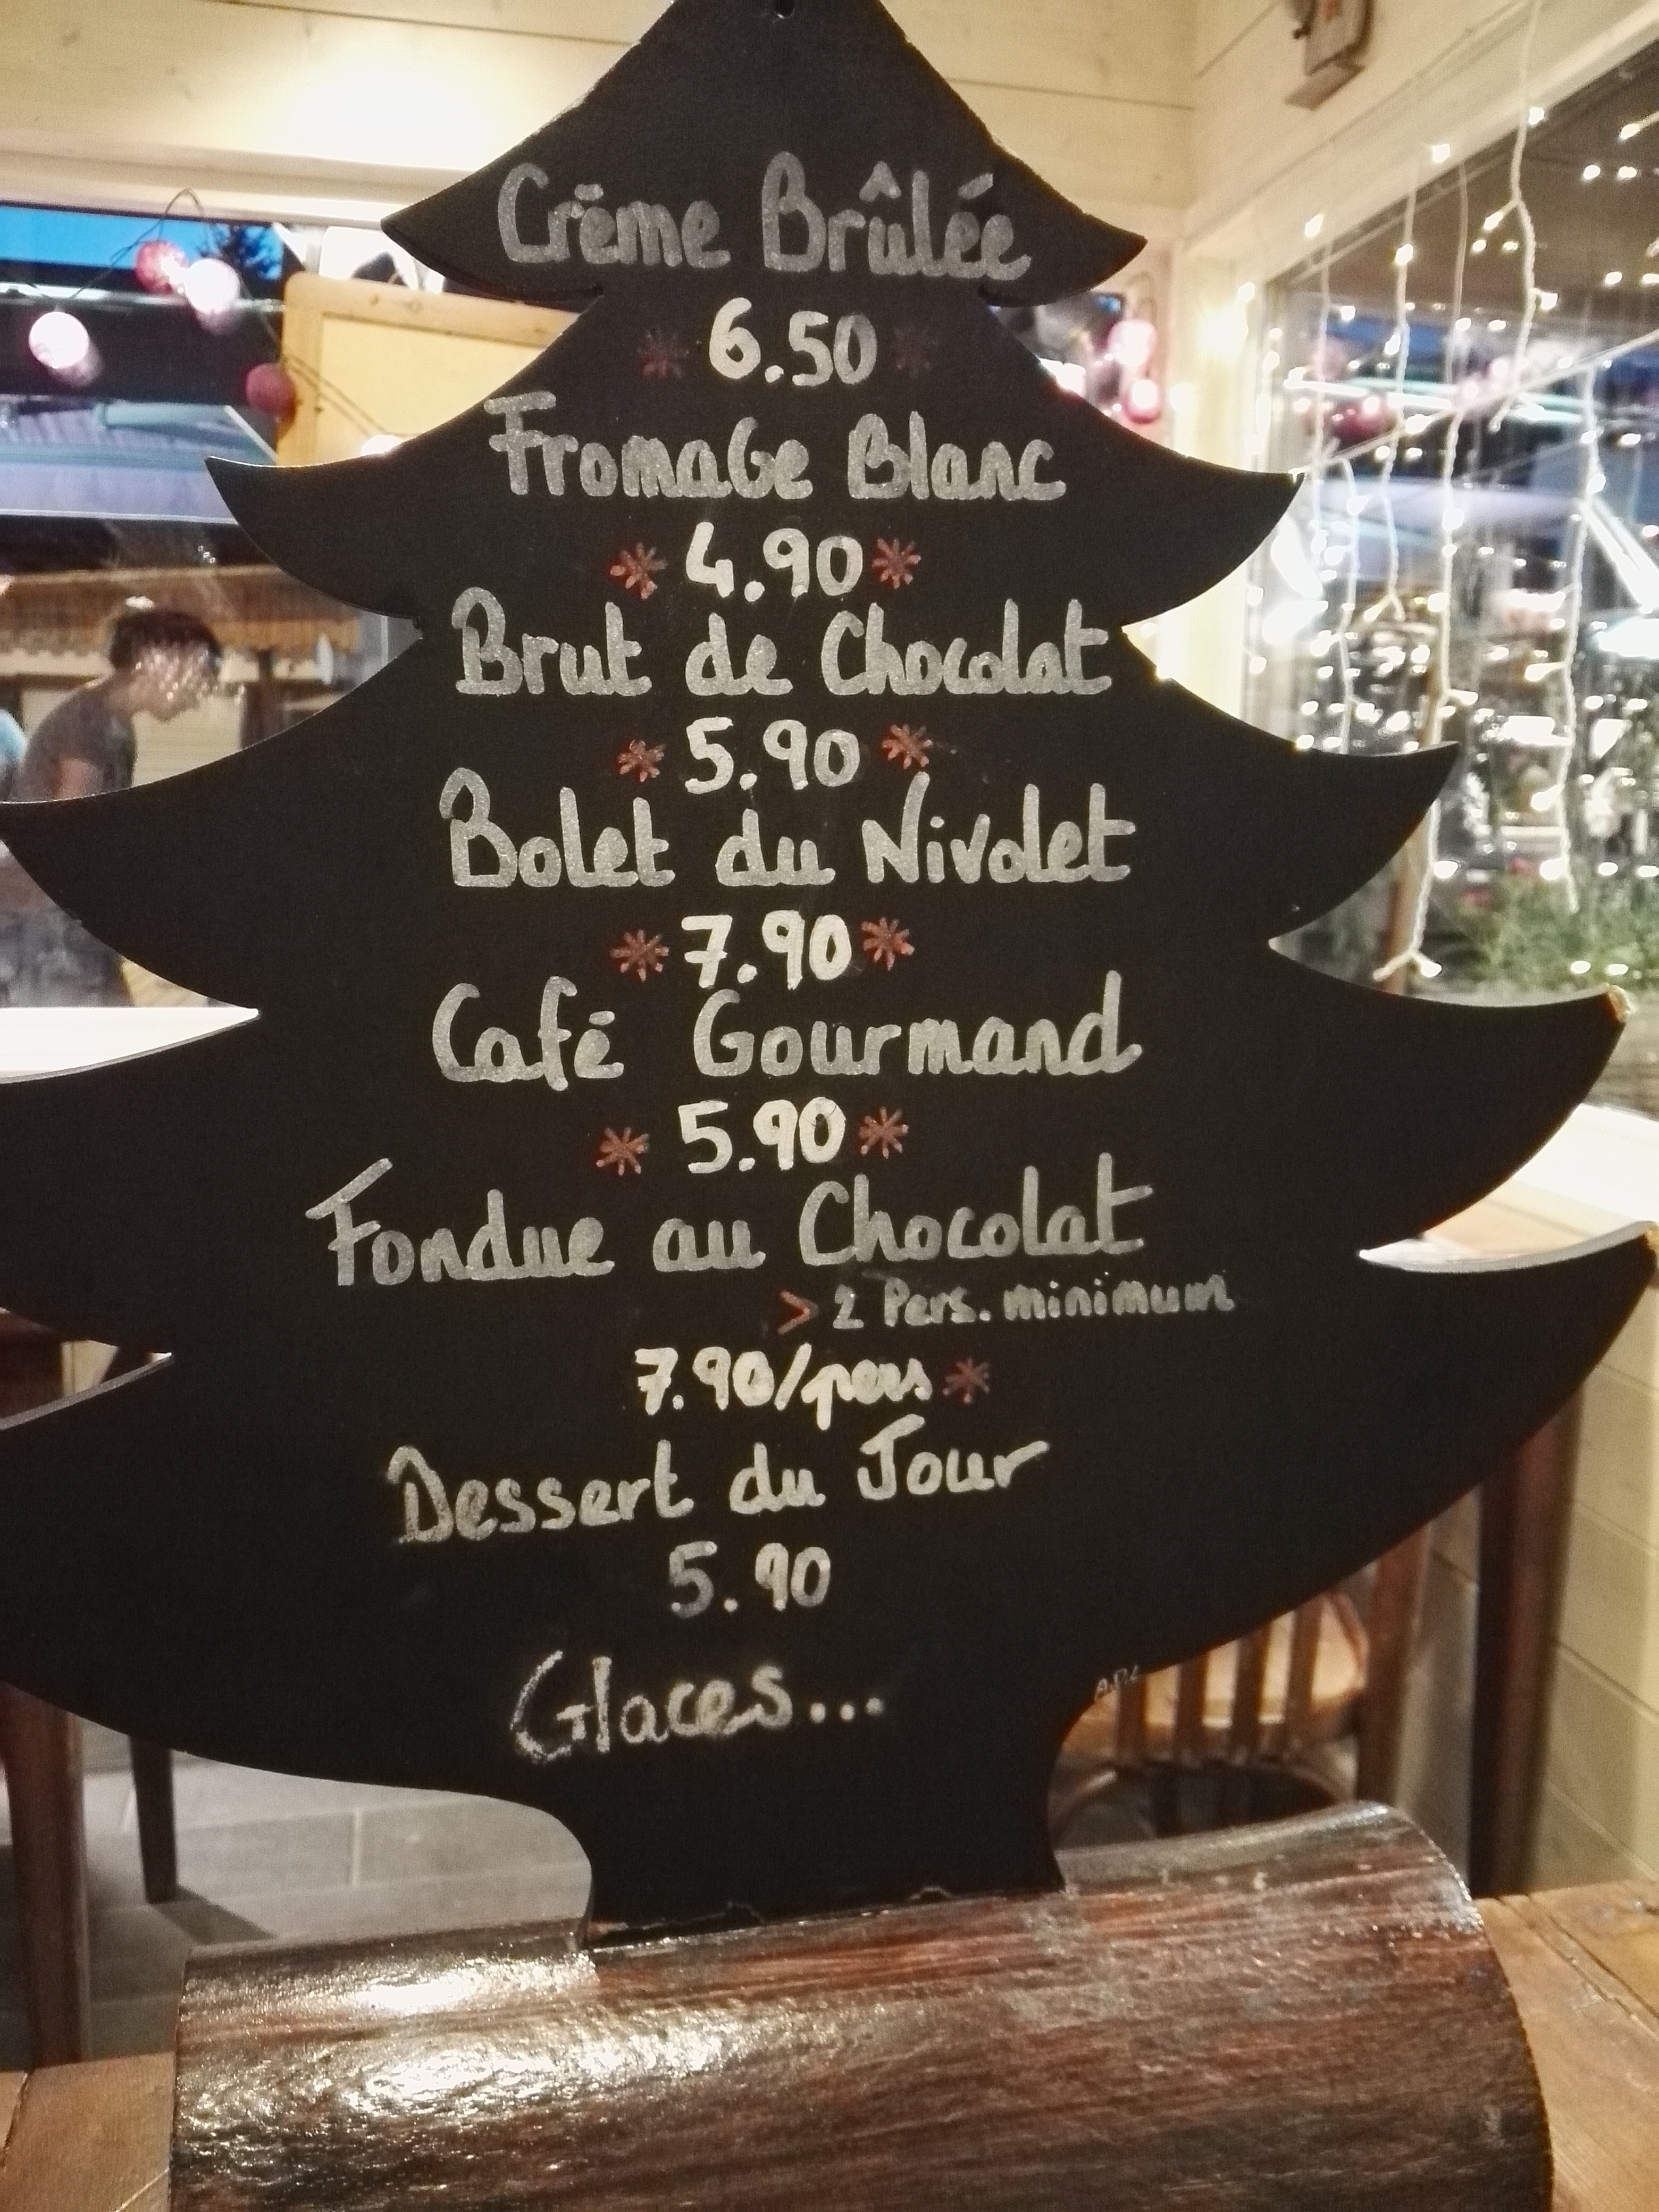 Crème Brûlée
6.50
Fromage Blanc
4.90
Brut de Chocolat
5.90
Bolet du Nivolet
7.90
Café Gourmand
5.90
Fondue au Chocolat
> 2 Pers. minimum
7.90/pers
Dessert du Jour
5.90
Glaces...